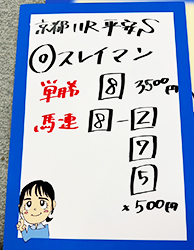 京都11R 平安S
◎スレイマン
単勝 8 3500円
馬連 8-2
7
5
×500円